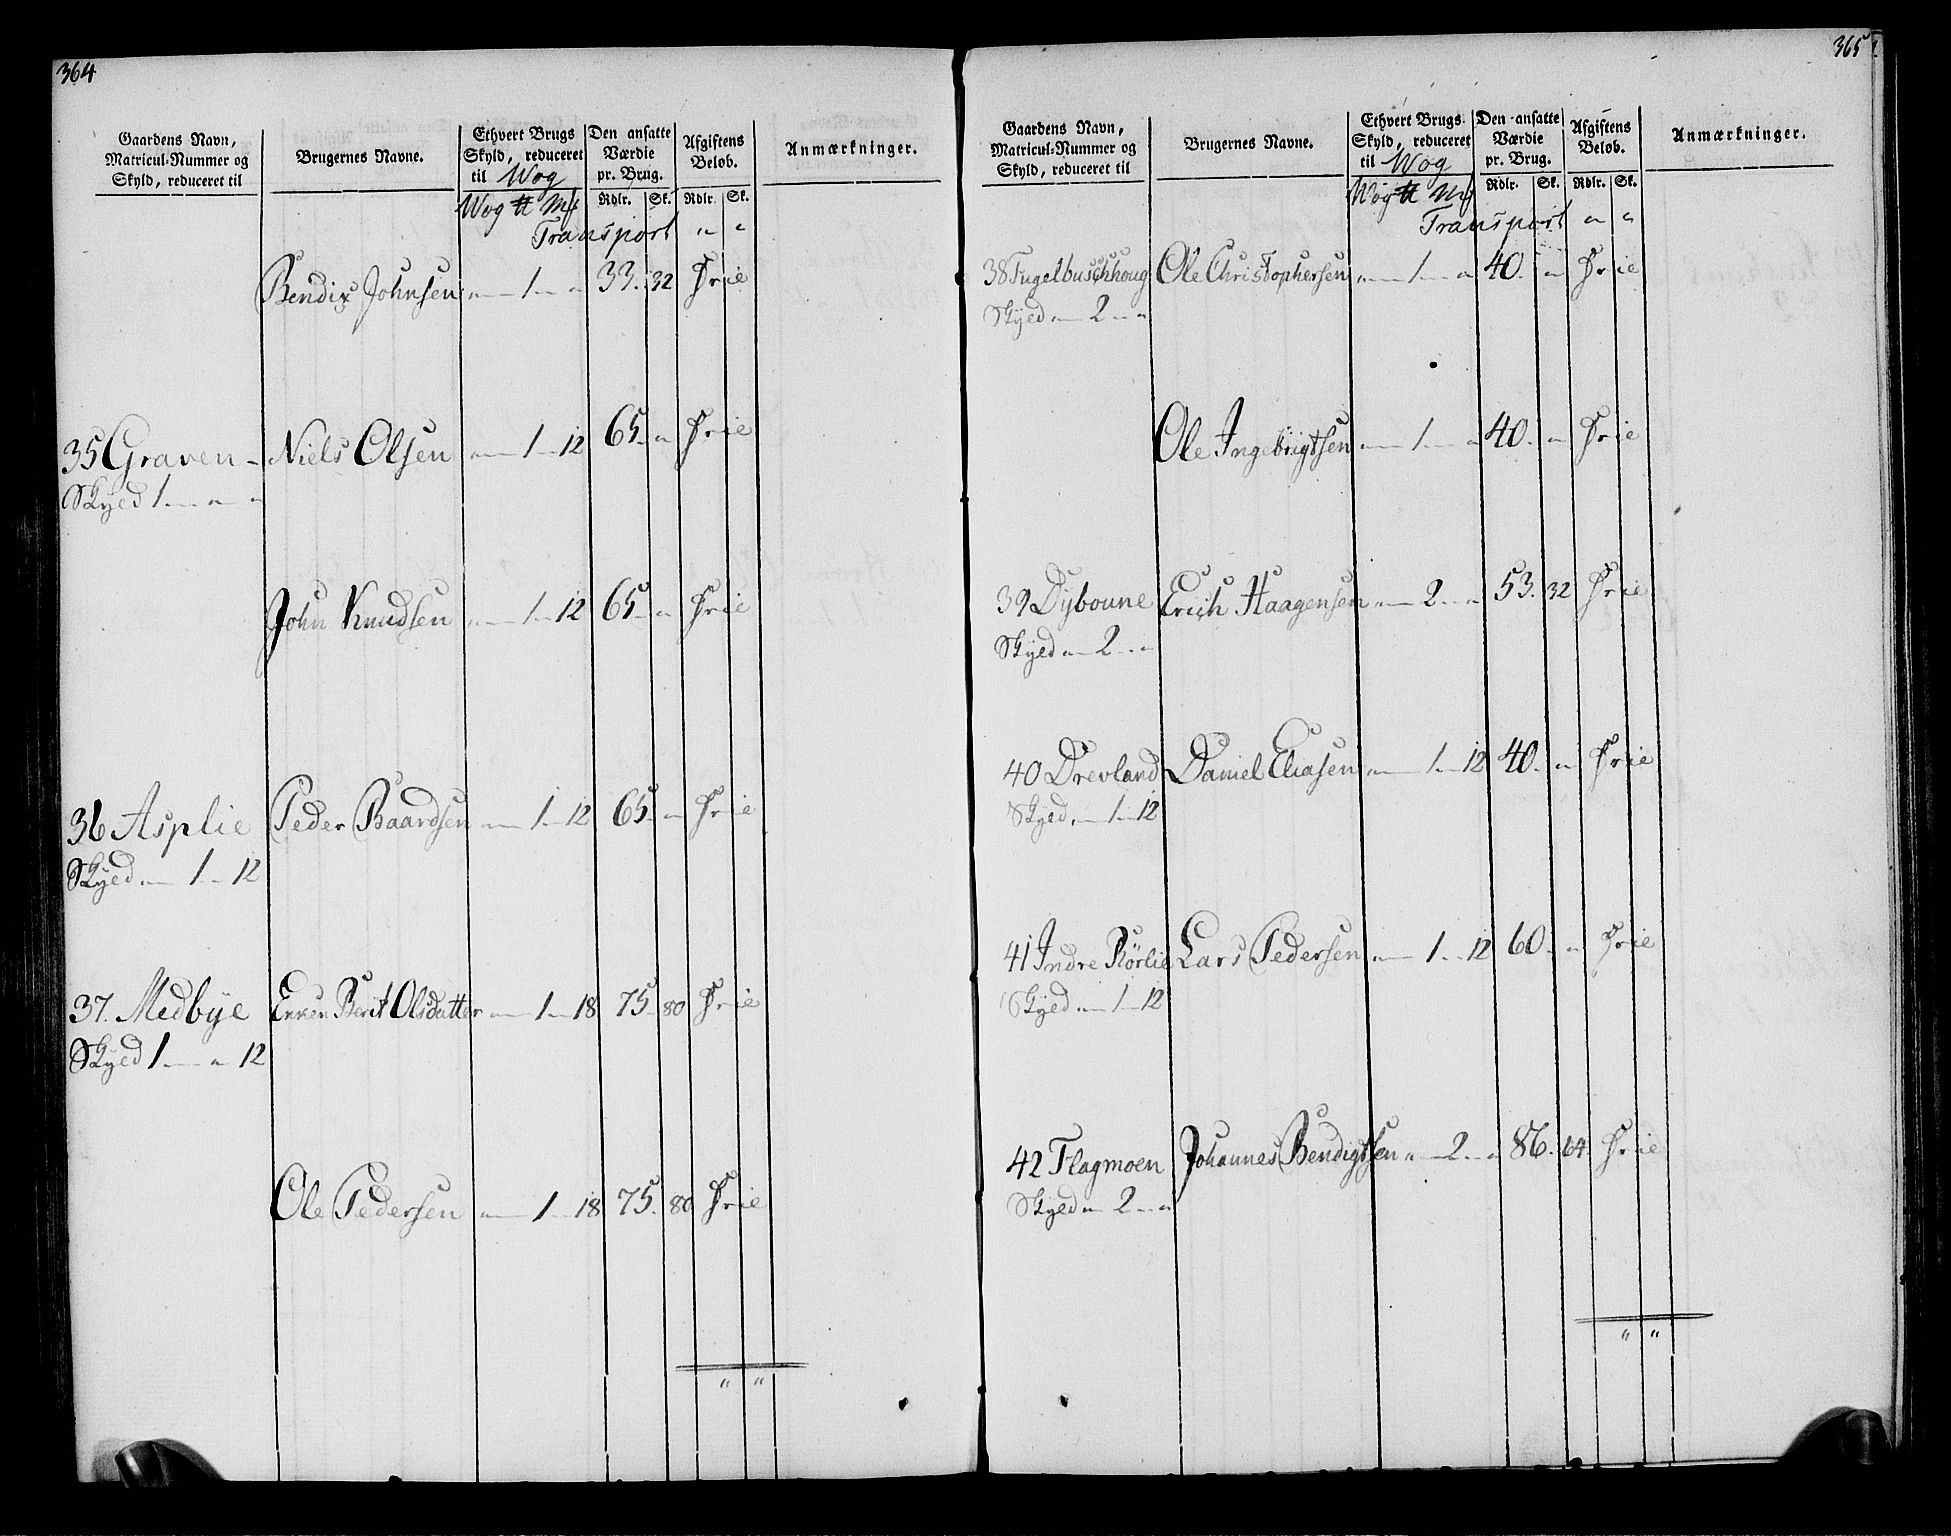 364
Gaardens Navn, Matricul-Nummer og Skyld, reduceret til
Brugernes Navne.
Ethvert Brugs Skyld, reduceret til Wog
Den ansatte Værdie pr. Brug.
Afgiftens Beløb.
Anmærkninger.
Wog ℔ Mk Rdlr. Sk. Rdlr. Sk.
Transport " "
Bendix Johnsen " 1 " 33. 32 Frie
35 Graven - Niels Olsen " 1 12 65. " Frie
Skyld 1 " "
John Knudsen " 1 12 65. " Frie
36 Asplie Peder Baardsen " 1 12 65. " Frie
Skyld " 1 12
37. Medbye Enken Berit Olsdatter " 1 18 75. 80 Frie
Skyld 1 " 12
Ole Pedersen " 1 18 75. 80 Frie
" "
365
Gaardens Navn, Matricul-Nummer og Skyld, reduceret til
Brugernes Navne.
Ethvert Brugs Skyld, reduceret til Wog
Den ansatte Værdie pr. Brug.
Afgiftens Beløb.
Anmærkninger.
Wog ℔ Mk Rdlr. Sk. Rdlr. Sk.
Transport " "
38 Fugelbuschhoug Ole Christophersen " 1 " 40. " Frie
Skyld " 2 "
Ole Ingebrigtsen " 1 " 40. " Frie
39 Dyboune Erich Haagensen " 2 " 53. 32 Frie
Skyld " 2 "
40 Drevland Daniel Eliasen " 1 12 40. " Frie
Skyld " 1 12
41 Indre Rörlie Lars Pedersen " 1 12 60. " Frie
Skyld " 1 12
42 Flagmoen Johannes Bendigtsen " 2 " 86. 64. Frie
Skyld " 2 "
" "